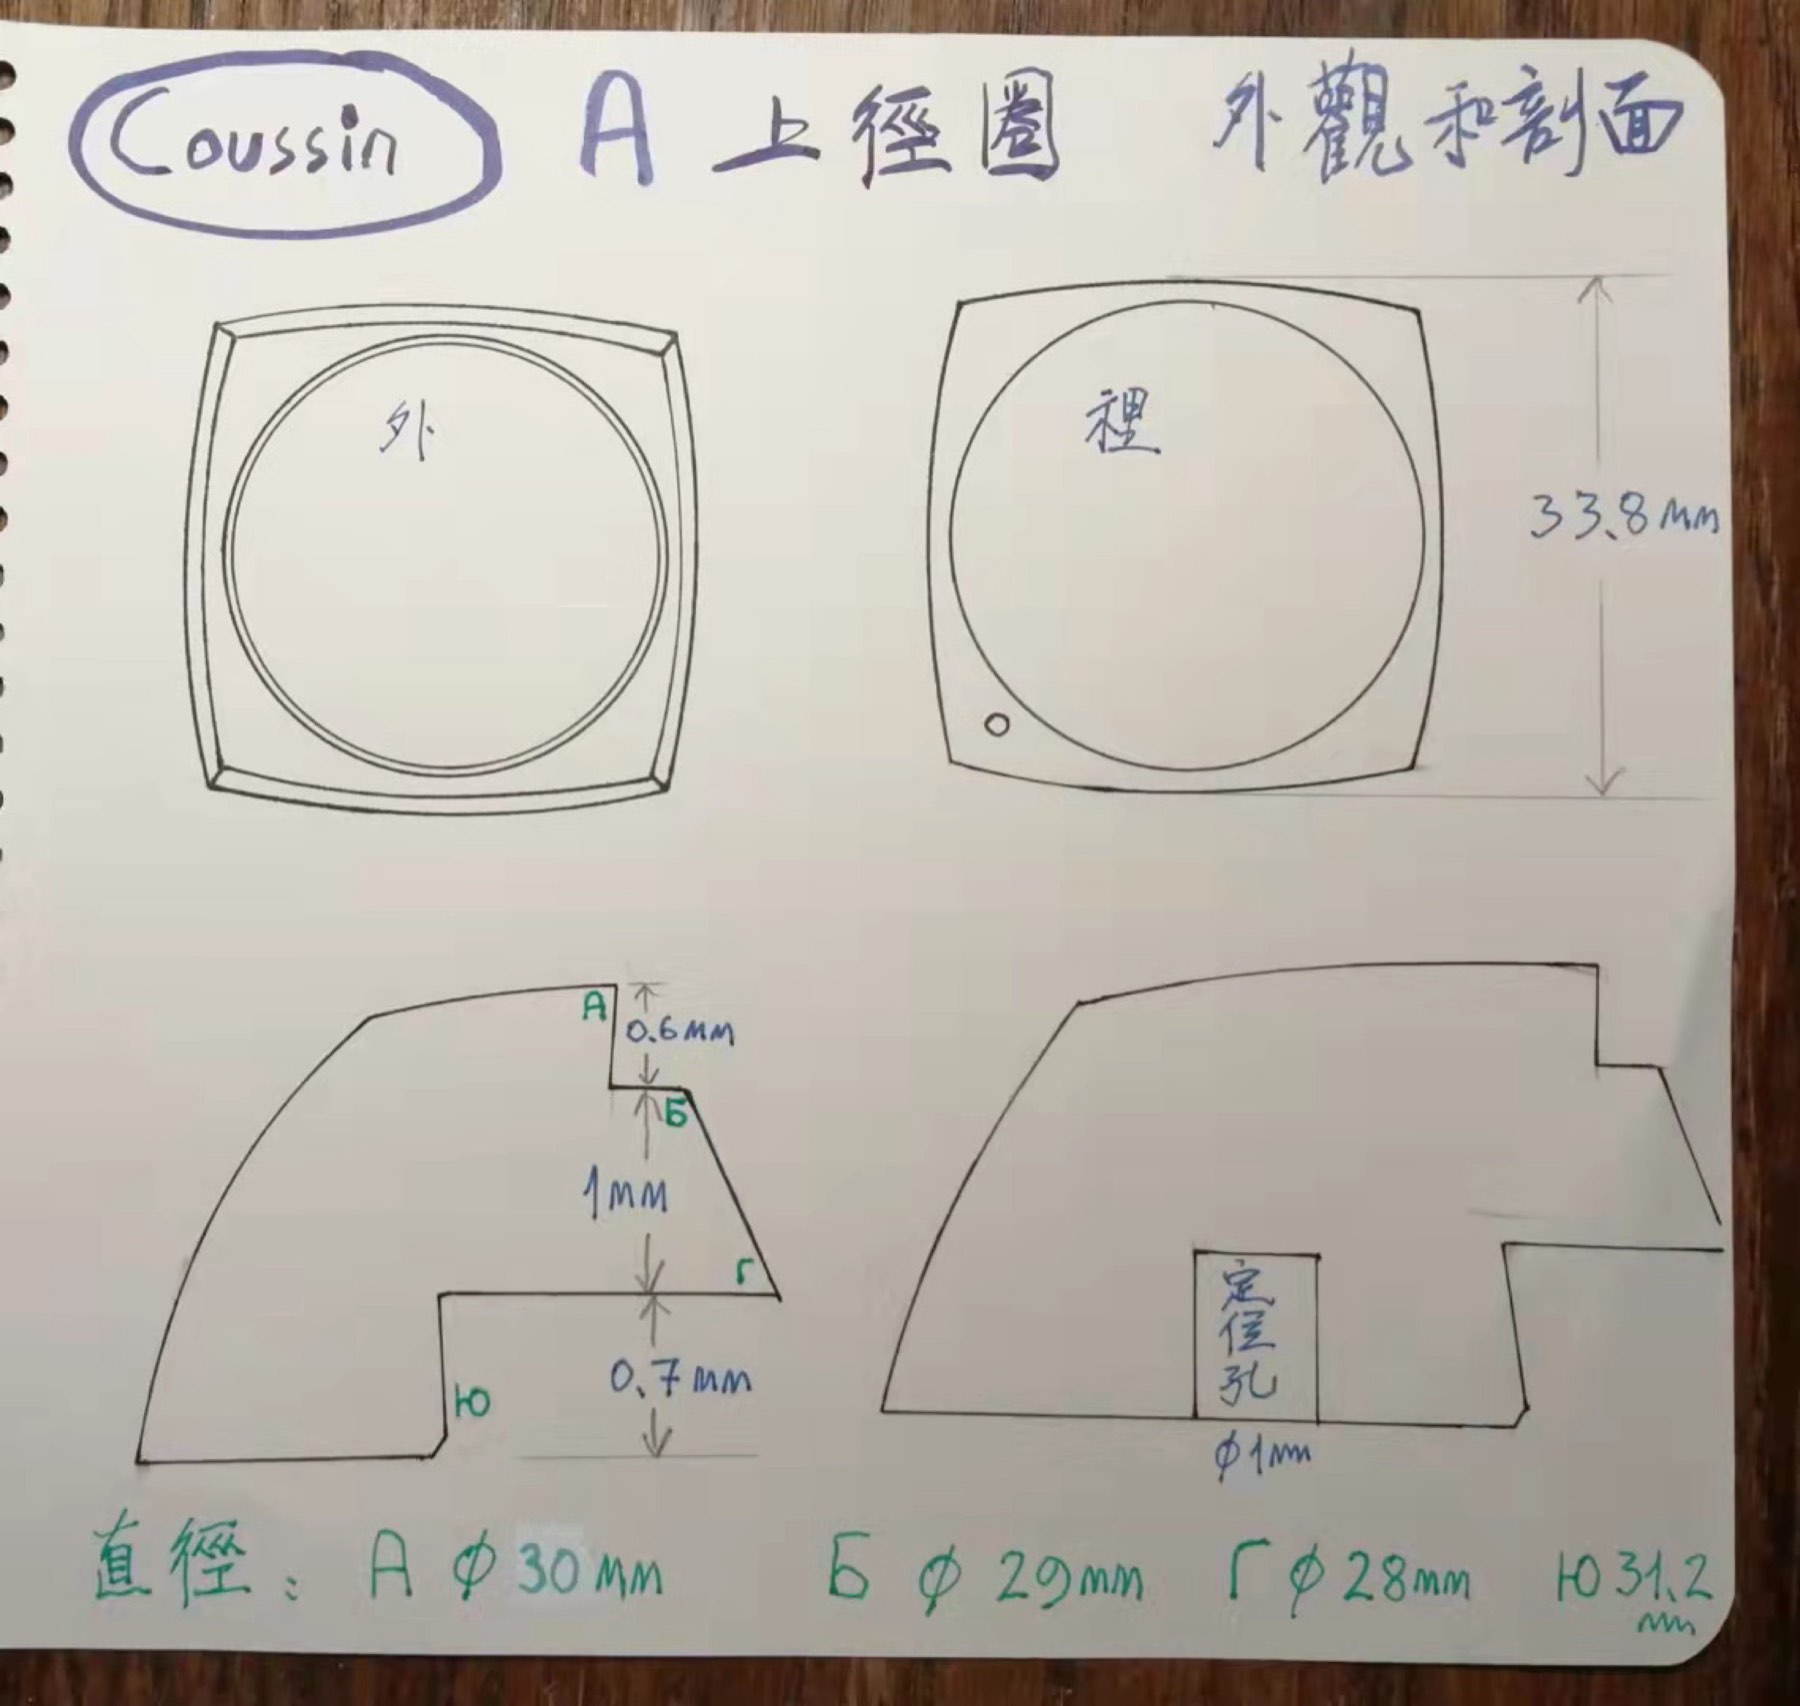 Coussin A 上徑圈 外觀和剖面
外
裡
33.8mm
A
0.6mm
Б
1mm
Г
0.7mm
Ю
定位孔
ϕ1mm
直徑: A ϕ 30mm Б ϕ 29mm Г ϕ 28mm Ю 31.2
mm